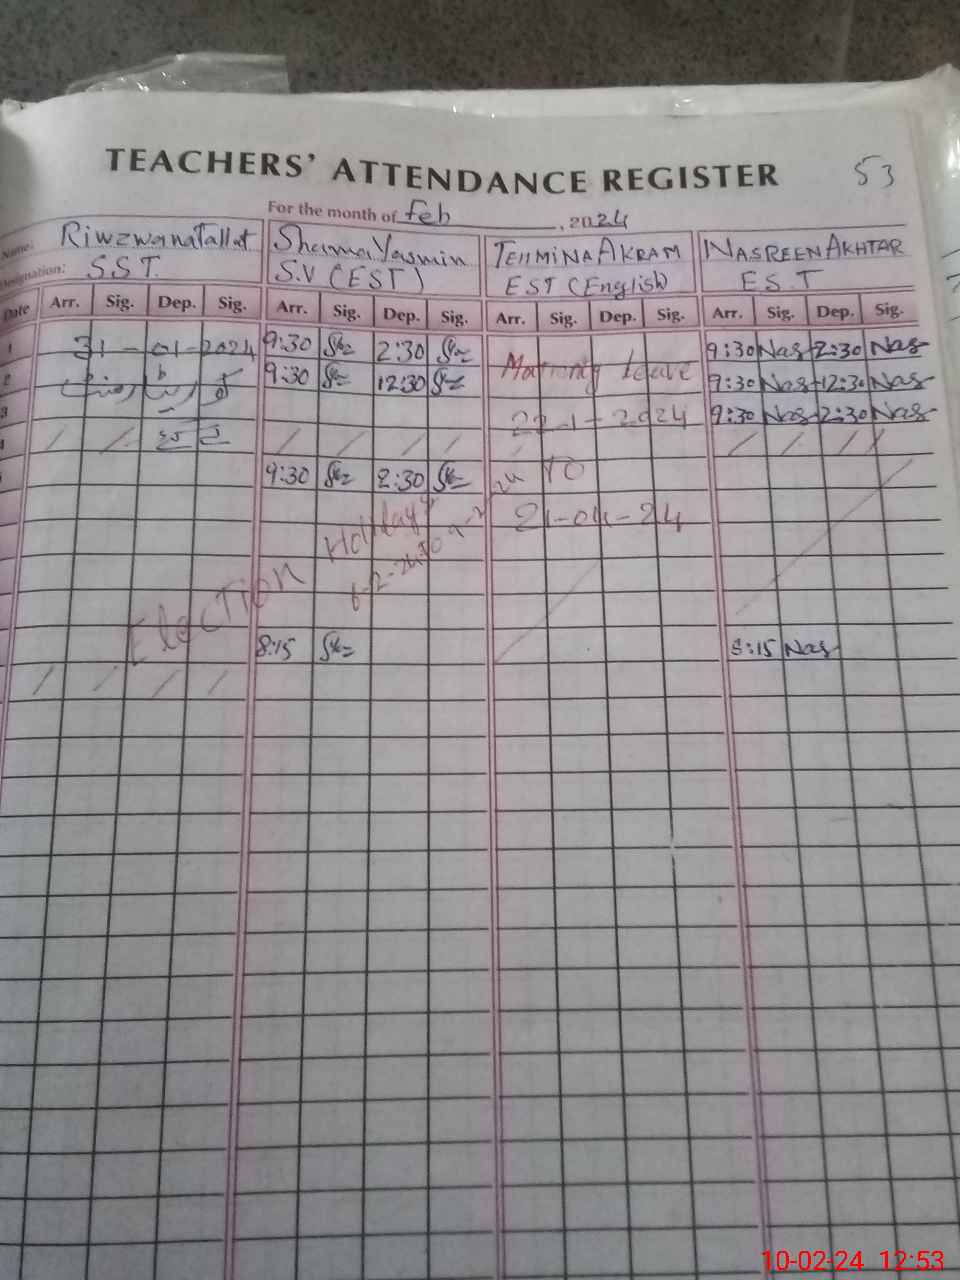 TEACHERS' ATTENDANCE REGISTER 53
For the month of Feb , 2024
Name: Riwzwana Tallat Shama Yasmin TEHMINA AKRAM NASREEN AKHTAR
Designation: S.S.T. S.V (EST) EST (English) E.S.T
Date Arr. Sig. Dep. Sig. Arr. Sig. Dep. Sig. Arr. Sig. Dep. Sig. Arr. Sig. Dep. Sig.
1 31-01-2024 9:30 2:30 9:30 Nas 2:30 Nas
2 9:30 12:30 Leave 9:30 Nas 12:30 Nas
3 1-2024 9:30 Nas 2:30 Nas
4
9:30 2:30 TO
21-04-24
Election Holidays
6-2-24 to
8:15 8:15 Nas
10-02-24 12:53